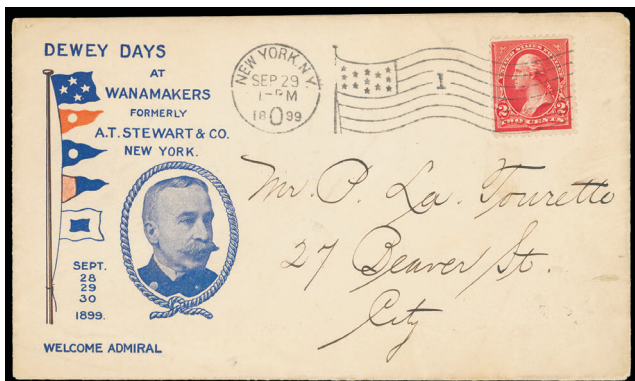 DEWEY DAYS
AT
WANAMAKERS
FORMERLY
A.T. STEWART & CO.
NEW YORK.
SEPT.
28
29
30
1899.
WELCOME ADMIRAL
NEW YORK, N.Y.
SEP 29
1-PM
1899
1
UNITED STATES POSTAGE
2 2
TWO CENTS
Mr. P. La. Tourette
27 Beaver St.
City